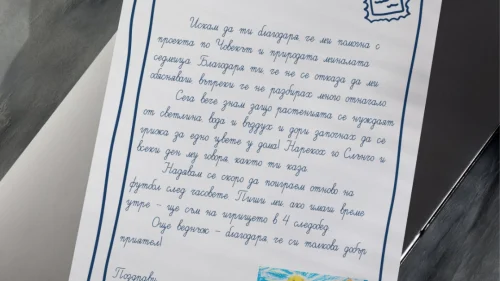 Искам да ти благодаря, че ми помогна с
проекта по Човекът и природата миналата
седмица. Благодаря ти, че не се отказа да ми
обясняваш, въпреки че не разбирах много отначало.
Сега вече знам защо растенията се нуждаят
от светлина, вода и въздух и дори започнах да се
грижа за едно цвете у дома! Нарекох го Слънчо и
всеки ден му говоря, както ти каза.
Надявам се скоро да поиграем отново на
футбол след часовете. Пиши ми, ако имаш време
утре – ще съм на игрището в 4 следобед.
Още веднъж – благодаря, че си толкова добър
приятел!